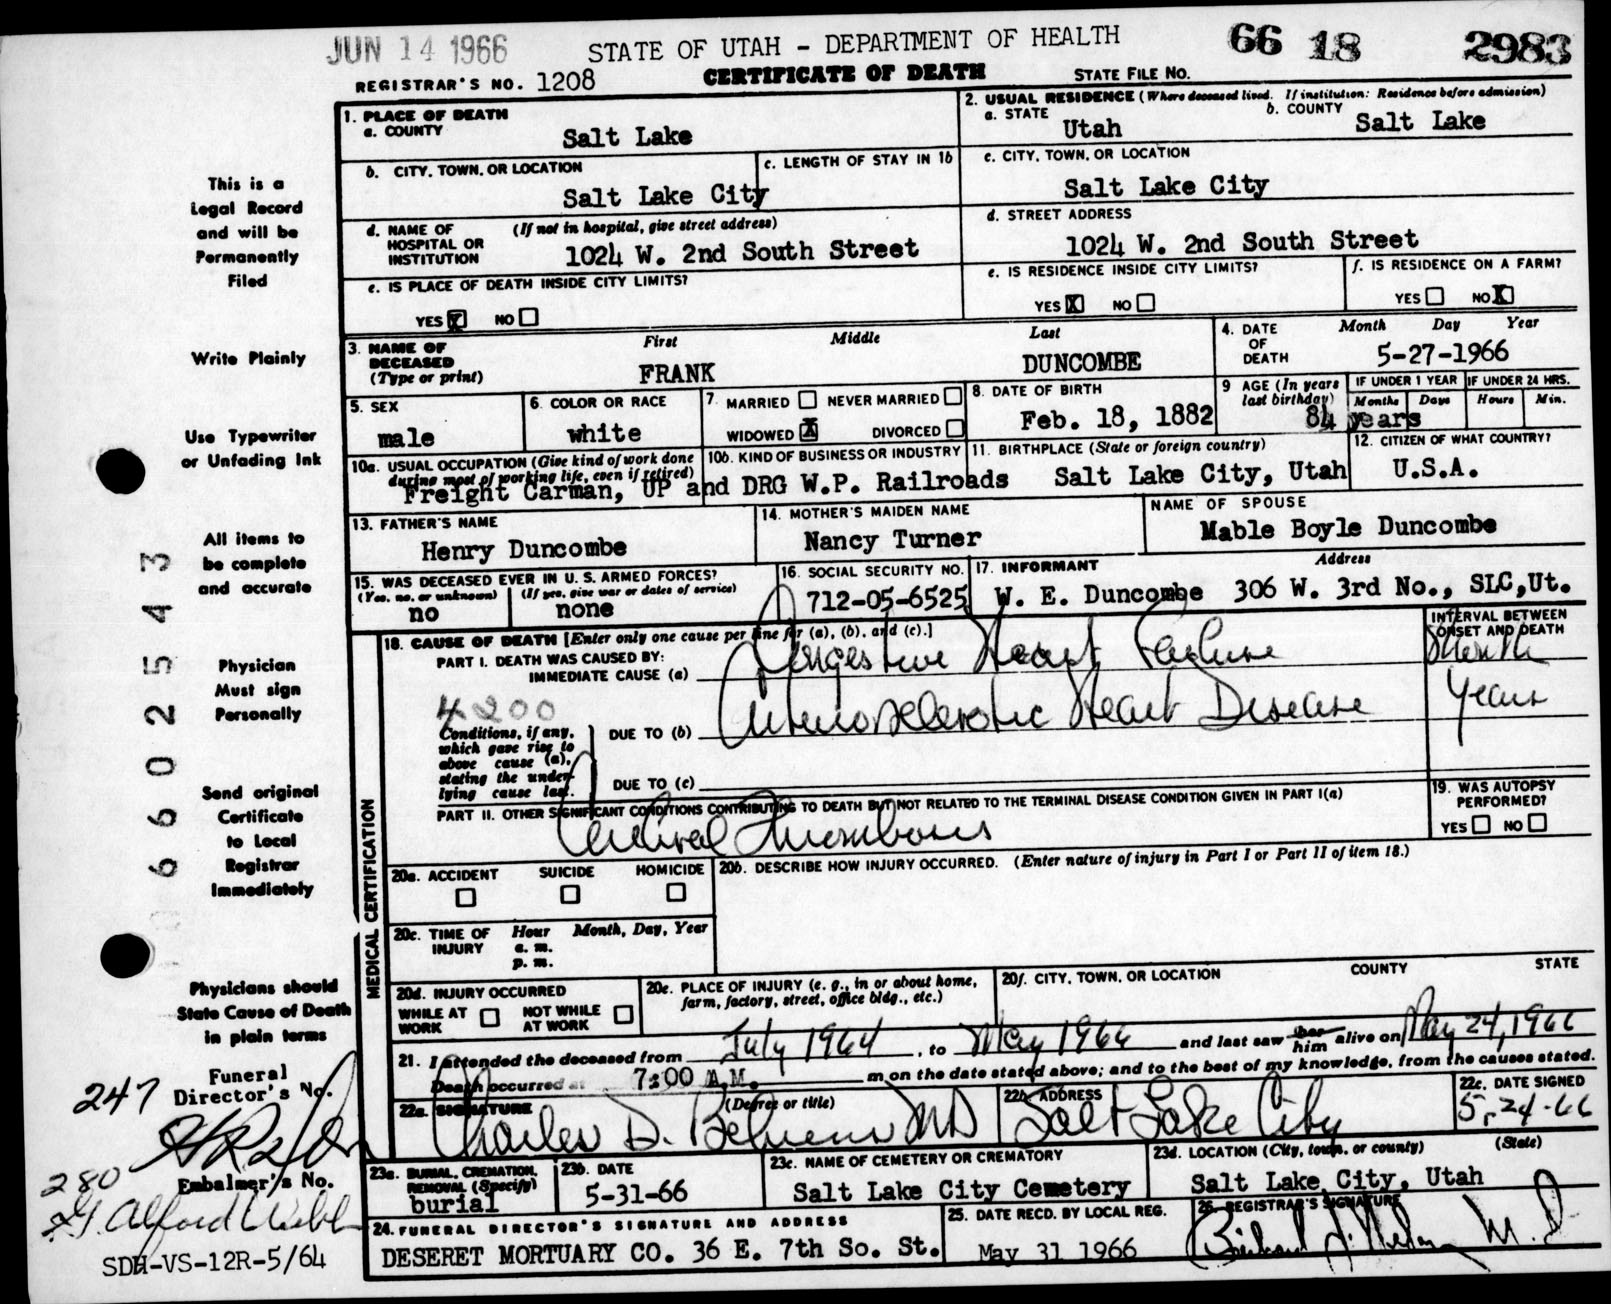 JUN 14 1966
STATE OF UTAH - DEPARTMENT OF HEALTH
66 18 2983
REGISTRAR'S NO. 1208
CERTIFICATE OF DEATH
STATE FILE NO.
1. PLACE OF DEATH
a. COUNTY
Salt Lake
2. USUAL RESIDENCE (Where deceased lived. If institution: Residence before admission)
a. STATE
Utah
b. COUNTY
Salt Lake
b. CITY, TOWN, OR LOCATION
Salt Lake City
c. LENGTH OF STAY IN 1b
c. CITY, TOWN, OR LOCATION
Salt Lake City
d. NAME OF HOSPITAL OR INSTITUTION
(If not in hospital, give street address)
1024 W. 2nd South Street
d. STREET ADDRESS
1024 W. 2nd South Street
e. IS PLACE OF DEATH INSIDE CITY LIMITS?
YES X NO
e. IS RESIDENCE INSIDE CITY LIMITS?
YES X NO
f. IS RESIDENCE ON A FARM?
YES NO X
3. NAME OF DECEASED
(Type or print)
First Middle Last
FRANK DUNCOMBE
4. DATE OF DEATH
Month Day Year
5-27-1966
5. SEX
male
6. COLOR OR RACE
white
7. MARRIED NEVER MARRIED
WIDOWED X DIVORCED
8. DATE OF BIRTH
Feb. 18, 1882
9 AGE (In years last birthday)
84 years
IF UNDER 1 YEAR
Months Days
IF UNDER 24 HRS.
Hours Min.
10a. USUAL OCCUPATION (Give kind of work done during most of working life, even if retired)
10b. KIND OF BUSINESS OR INDUSTRY
Freight Carman, UP and DRG W.P. Railroads
11. BIRTHPLACE (State or foreign country)
Salt Lake City, Utah
12. CITIZEN OF WHAT COUNTRY?
U.S.A.
13. FATHER'S NAME
Henry Duncombe
14. MOTHER'S MAIDEN NAME
Nancy Turner
NAME OF SPOUSE
Mable Boyle Duncombe
15. WAS DECEASED EVER IN U. S. ARMED FORCES?
(Yes, no, or unknown) (If yes, give war or dates of service)
no none
16. SOCIAL SECURITY NO.
712-05-6525
17. INFORMANT Address
W. E. Duncombe 306 W. 3rd No., SLC,Ut.
MEDICAL CERTIFICATION
18. CAUSE OF DEATH [Enter only one cause per line for (a), (b), and (c).]
INTERVAL BETWEEN ONSET AND DEATH
PART I. DEATH WAS CAUSED BY:
IMMEDIATE CAUSE (a) Congestive Heart Failure
4200
Conditions, if any, which gave rise to above cause (a), stating the underlying cause last.
DUE TO (b) Arteriosclerotic Heart Disease Years
DUE TO (c)
PART II. OTHER SIGNIFICANT CONDITIONS CONTRIBUTING TO DEATH BUT NOT RELATED TO THE TERMINAL DISEASE CONDITION GIVEN IN PART I(a)
Cerebral Thrombosis
19. WAS AUTOPSY PERFORMED?
YES NO
20a. ACCIDENT SUICIDE HOMICIDE
20b. DESCRIBE HOW INJURY OCCURRED. (Enter nature of injury in Part I or Part II of item 18.)
20c. TIME OF INJURY
Hour Month, Day, Year
a. m.
p. m.
20d. INJURY OCCURRED
WHILE AT WORK NOT WHILE AT WORK
20e. PLACE OF INJURY (e. g., in or about home, farm, factory, street, office bldg., etc.)
20f. CITY, TOWN, OR LOCATION COUNTY STATE
21. I attended the deceased from July 1964, to May 1966 and last saw her him alive on May 24, 1966
Death occurred at 7:00 A.M. m on the date stated above; and to the best of my knowledge, from the causes stated.
22a. SIGNATURE (Degree or title)
Charles D. MD
22b. ADDRESS
Salt Lake City
22c. DATE SIGNED
5-24-66
23a. BURIAL, CREMATION, REMOVAL (Specify)
burial
23b. DATE
5-31-66
23c. NAME OF CEMETERY OR CREMATORY
Salt Lake City Cemetery
23d. LOCATION (City, town, or county) (State)
Salt Lake City, Utah
24. FUNERAL DIRECTOR'S SIGNATURE AND ADDRESS
DESERET MORTUARY CO. 36 E. 7th So. St.
25. DATE RECD. BY LOCAL REG.
May 31 1966
26. REGISTRAR'S SIGNATURE
M. D
This is a
Legal Record
and will be
Permanently
Filed
Write Plainly
Use Typewriter
or Unfading Ink
All items to
be complete
and accurate
Physician
Must sign
Personally
Send original
Certificate
to Local
Registrar
Immediately
Physicians should
State Cause of Death
in plain terms
660025543
Funeral
247 Director's No.
280
Embalmer's No.
Alford
SDH-VS-12R-5/64